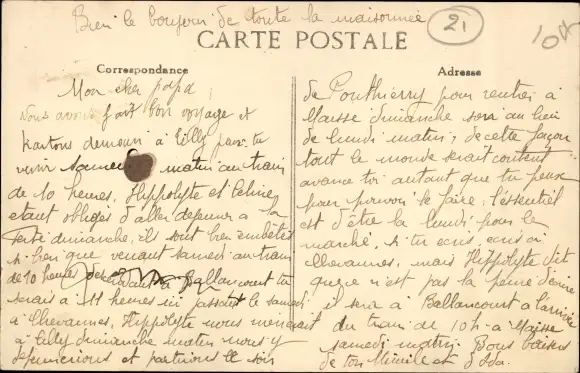 Bien le bonjour de toute la maisonnée
21
CARTE POSTALE
Correspondance
Adresse
Mon cher papa
Nous avons fait bon voyage et
partons demain à Gilly peux-tu
venir samedi matin au train
de 10 heures, Hippolyte et Celine
etant obligés d'aller dejeuner a la
Ferté dimanche, ils sont bien embêtés
si bien que venant samedi au train
de 10 heures descendant à Ballancourt tu
serais à 11 heures ici passant le samedi
à Chevannes, Hippolyte nous mènerait
à Gilly dimanche matin nous y
dejeunerions et partirions le soir
de Ponthierry pour rentrer à
Maisse dimanche soir au lieu
de lundi matin, de cette façon
tout le monde serait content
avance toi autant que tu peux
pour pouvoir le faire, l'essentiel
est d'être là lundi pour le
marché. si tu ecris, ecris à
Chevannes, mais Hippolyte dit
que ce n'est pas la peine d'ecrire
il sera à Ballancourt à l'arrivée
du train de 10h à Maisse
samedi matin. Bons baisers
de ton Emile et d'Ida.